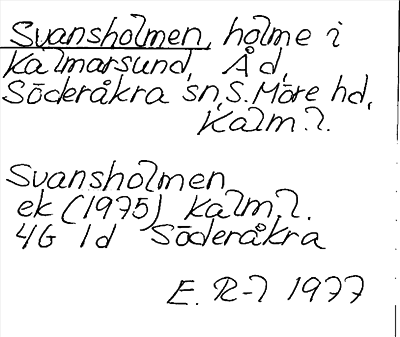 Svansholmen, holme i
Kalmarsund, Åd,
Söderåkra sn, S. Möre hd,
Kalm. l.
Svansholmen
ek (1975) Kalm. l.
4G 1d Söderåkra
E. R-l 1977